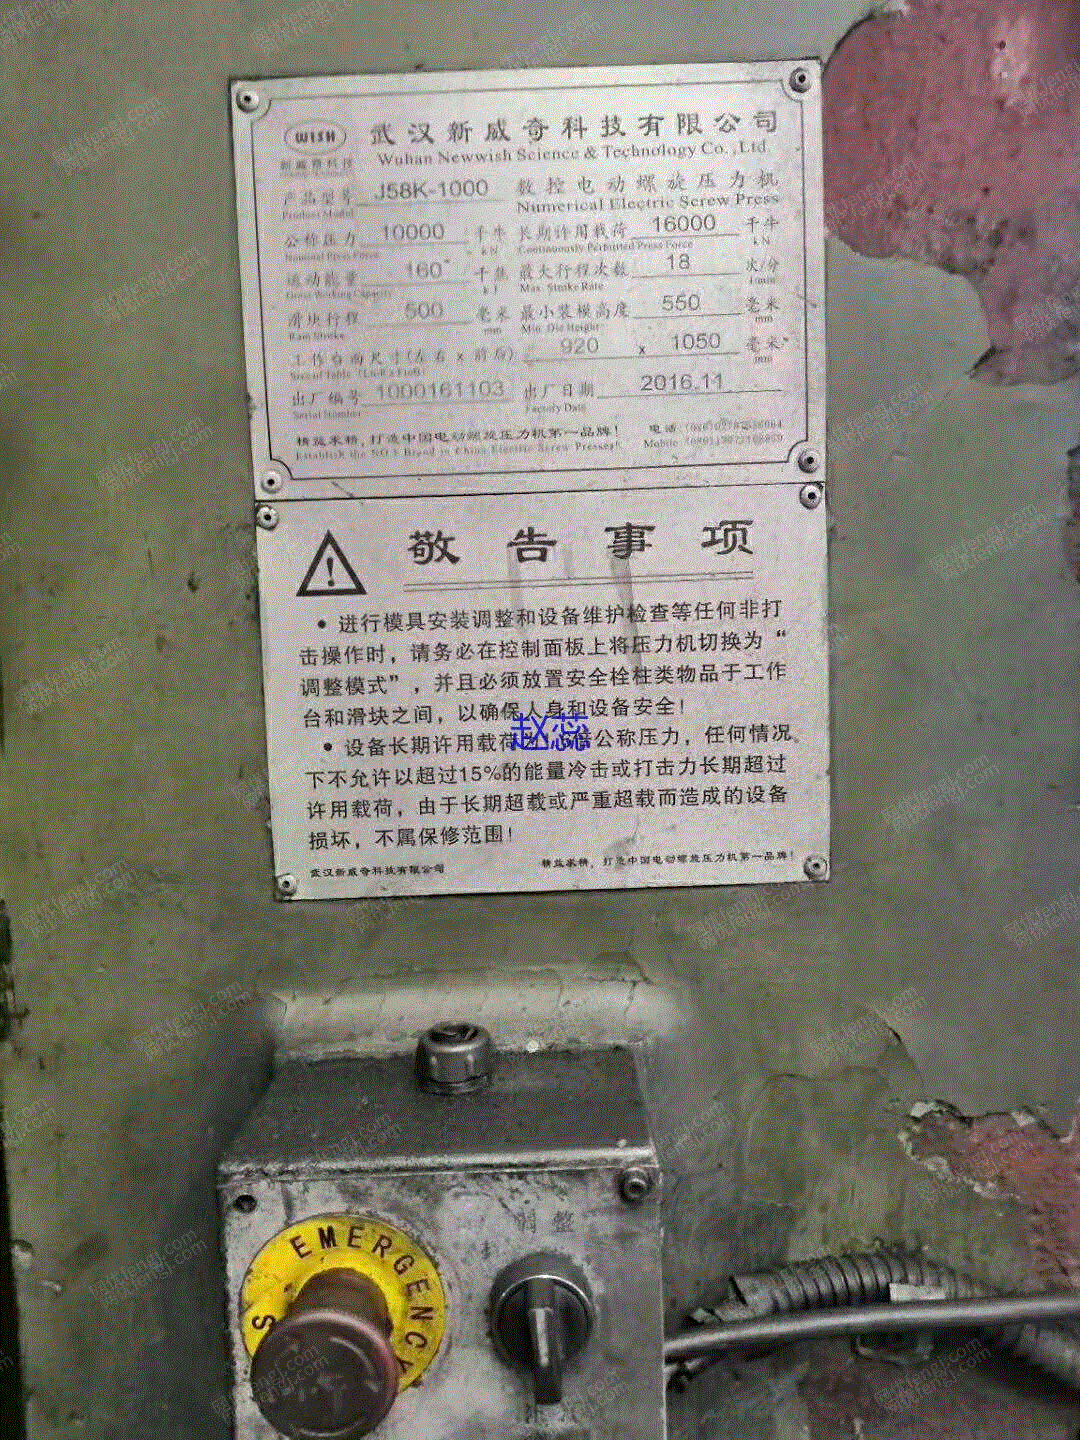 WISH
新威奇科技
武汉新威奇科技有限公司
Wuhan Newwish Science & Technology Co.,Ltd.
产品型号 J58K-1000 数控电动螺旋压力机
Product Model Numerical Electric Screw Press
公称压力 10000 千牛 长期许用载荷 16000 千牛
Nominal Press Force kN Continuously Permitted Press Force kN
运动能量 160 千焦 最大行程次数 18 次/分
kJ Max. Stroke Rate 1/min
滑块行程 500 毫米 最小装模高度 550 毫米
Ram Stroke mm Min. Die Height mm
工作台面尺寸(左右 x 前后) 920 x 1050 毫米
mm
出厂编号 1000161103 出厂日期 2016.11
Serial Number Factory Date
精益求精,打造中国电动螺旋压力机第一品牌! 电话:
Establish the NO.1 Brand in China Electric Screw Presses! Mobile:
敬告事项
• 进行模具安装调整和设备维护检查等任何非打
击操作时，请务必在控制面板上将压力机切换为“
调整模式”，并且必须放置安全栓柱类物品于工作
台和滑块之间，以确保人身和设备安全！
• 设备长期许用载荷为1.6倍公称压力，任何情况
下不允许以超过15%的能量冷击或打击力长期超过
许用载荷，由于长期超载或严重超载而造成的设备
损坏，不属保修范围！
武汉新威奇科技有限公司 精益求精，打造中国电动螺旋压力机第一品牌！
赵蕊
调整
EMERGENCY
S